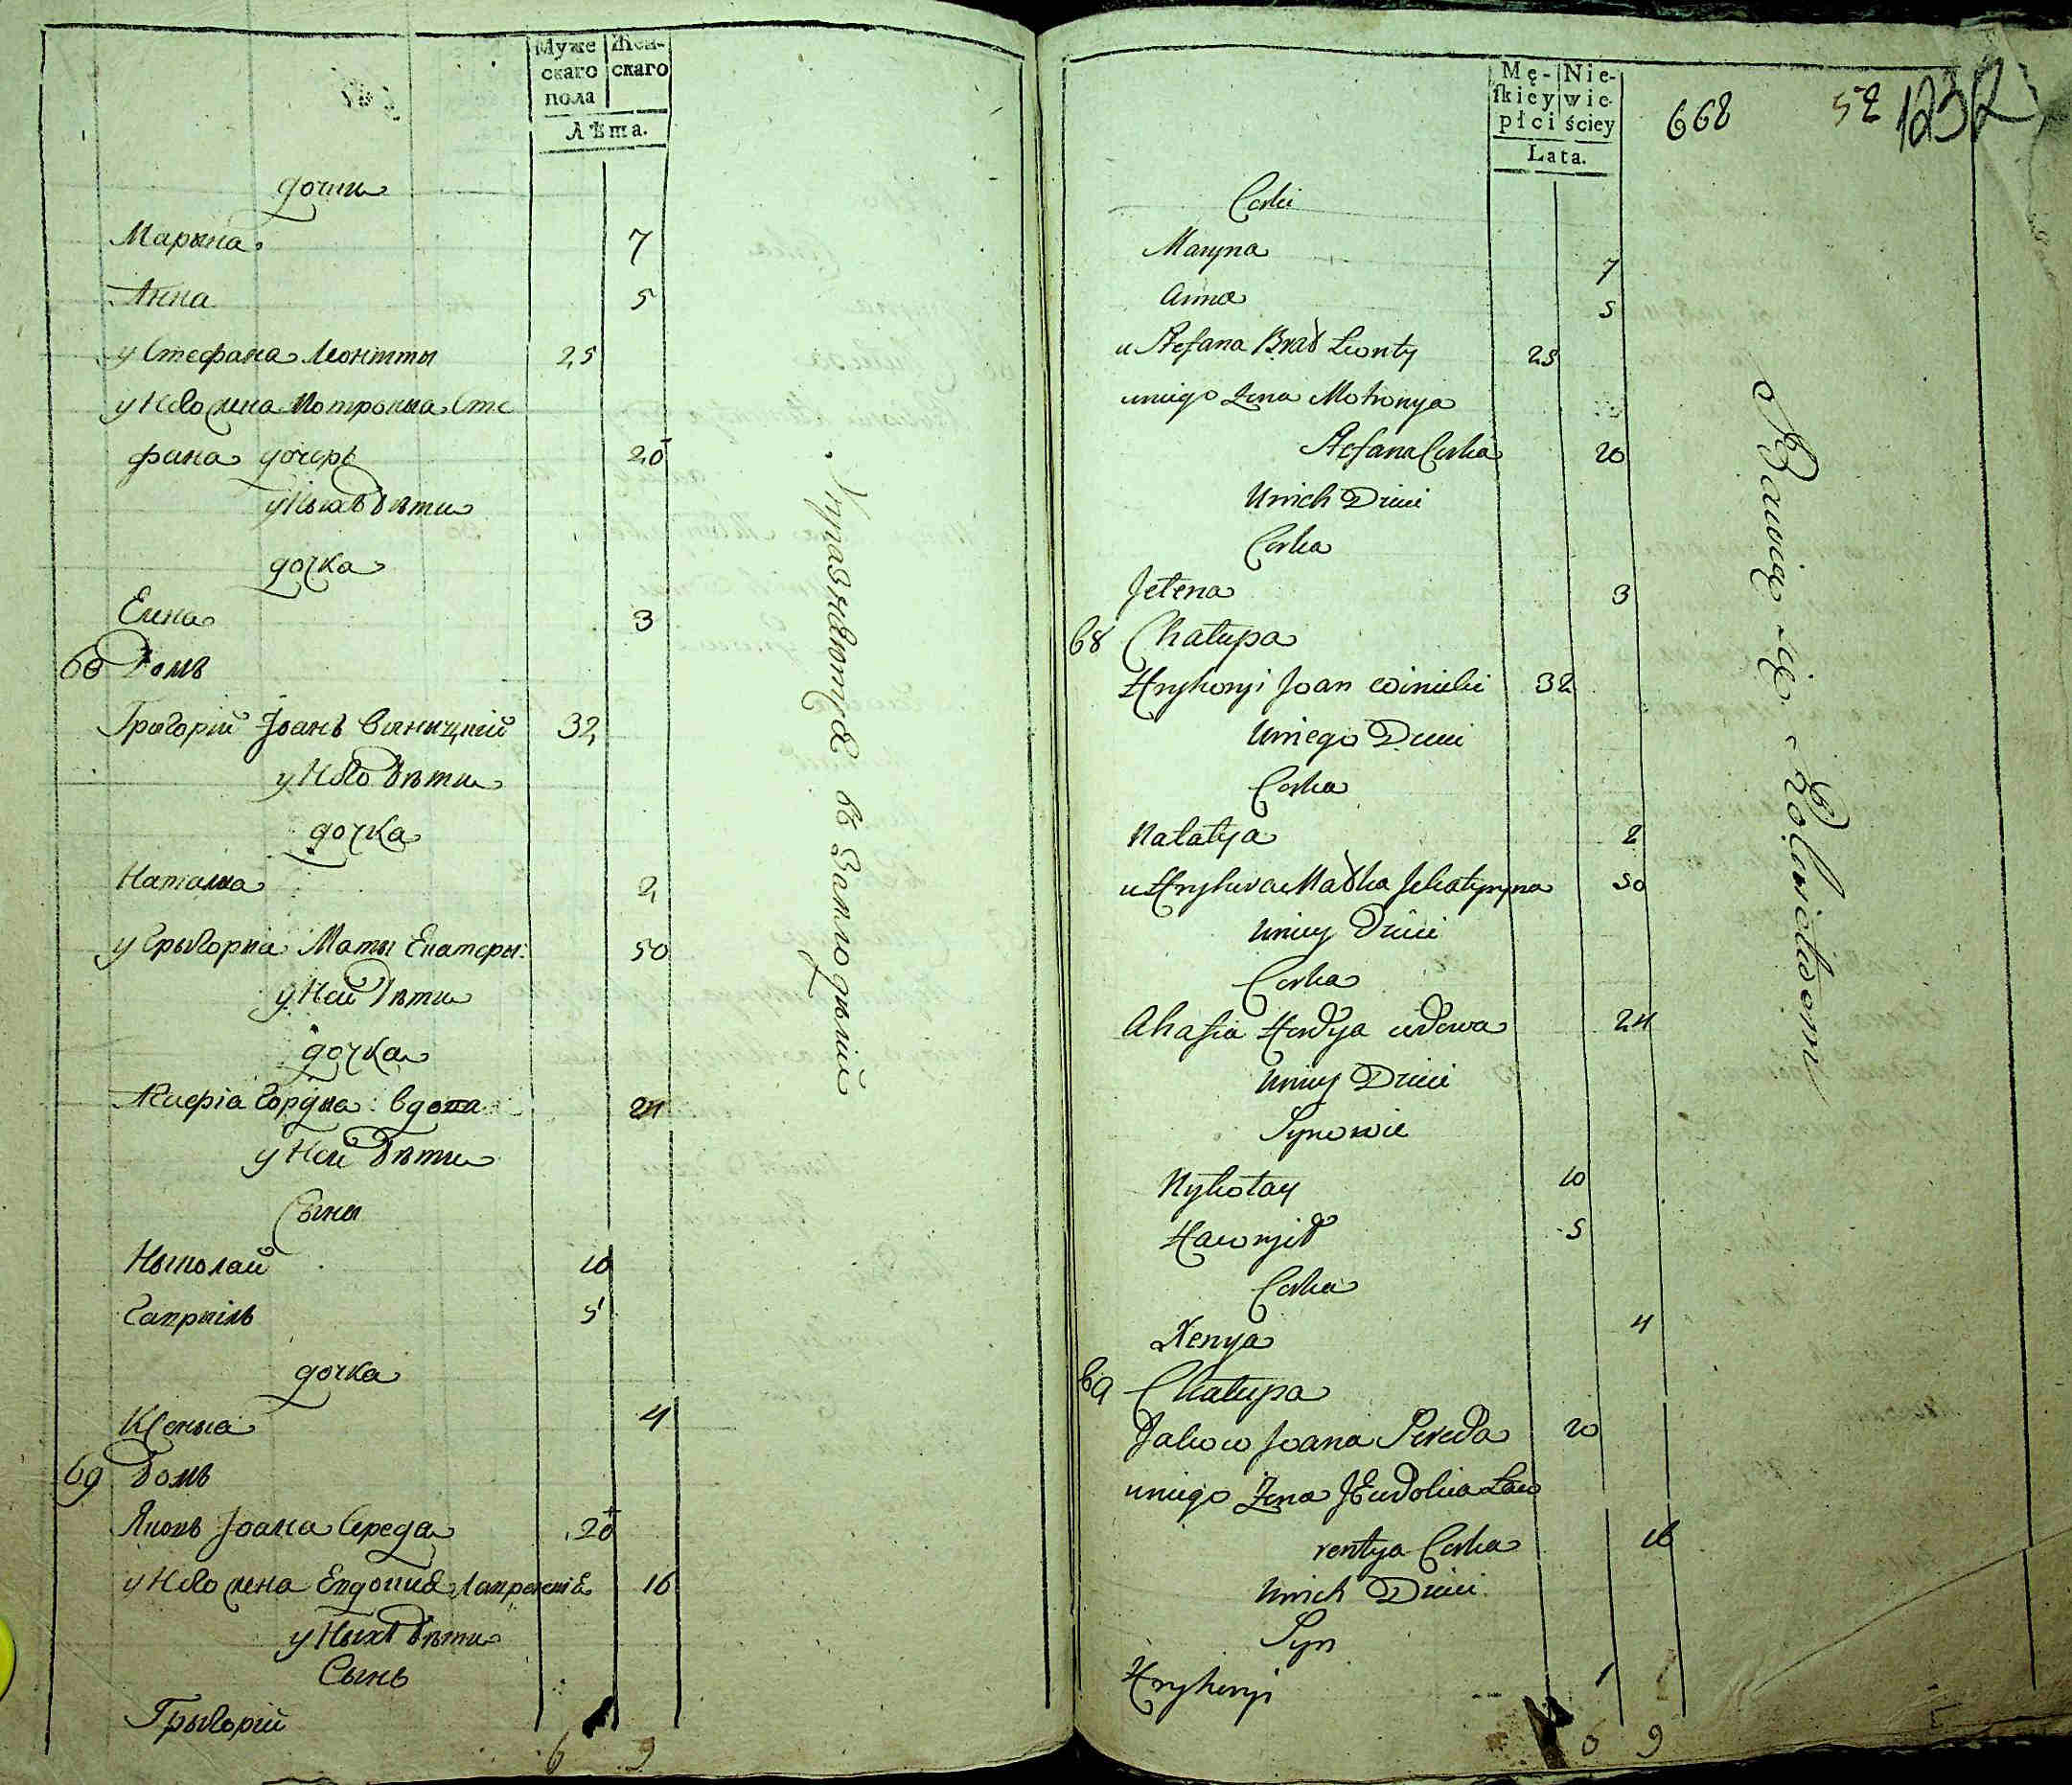 Муже
скаго
пола
Жен-
скаго
Лѣта.
дочки
Марына 7
Анна 5
у Стефана Леонтты 25
у Него жена Мотрона Сте
фана дочерь 20
у Ныхъ дѣти
дочка
Елена 3
68 Домъ
Грыгорій Іоанъ Виницкій 32
у Него дѣти
дочка
Наталиа 2
у Грыгориа Маты Екатеры: 50
у Ней дѣти
дочка
Агафіа Гордиа вдова 24
у Ней дѣти
Сыны
Ныколай 10
Гавриілъ 5
дочка
Ксениа 4
69 Домъ
Яковъ Іоана Середа 20
у Него жена Евдокиа Лаврентій 16
у Ныхъ дѣти
Сынъ
Грыгорій 1
6 9
Упражнѧютсѧ въ Землодѣліи
Mę-
skiey
płci
Nie-
wie-
ściey
Lata.
668 52 1232
Corki
Maryna 7
Anna 5
u Stefana Brat Leonty 25
uniego Zena Motronya
Stefana Corka 20
Unich Dzieci
Corka
Jelena 3
68 Chalupa
Hryhoryi Joan Winicki 32
Uniego Dzieci
Corka
Natalya 2
u Hryhora Matka Jekateryna 50
Uniey Dzieci
Corka
Ahafia Hordya wdowa 24
Uniey Dzieci
Synowie
Nykołay 10
Hawryił 5
Corka
Xenya 4
69 Chalupa
Jakow Joana Sereda 20
uniego Zena JEwdokia Law
rentya Corka 16
Unich Dzieci
Syn
Hryhoryi 1
6 9
Bawią się Rolnictwem